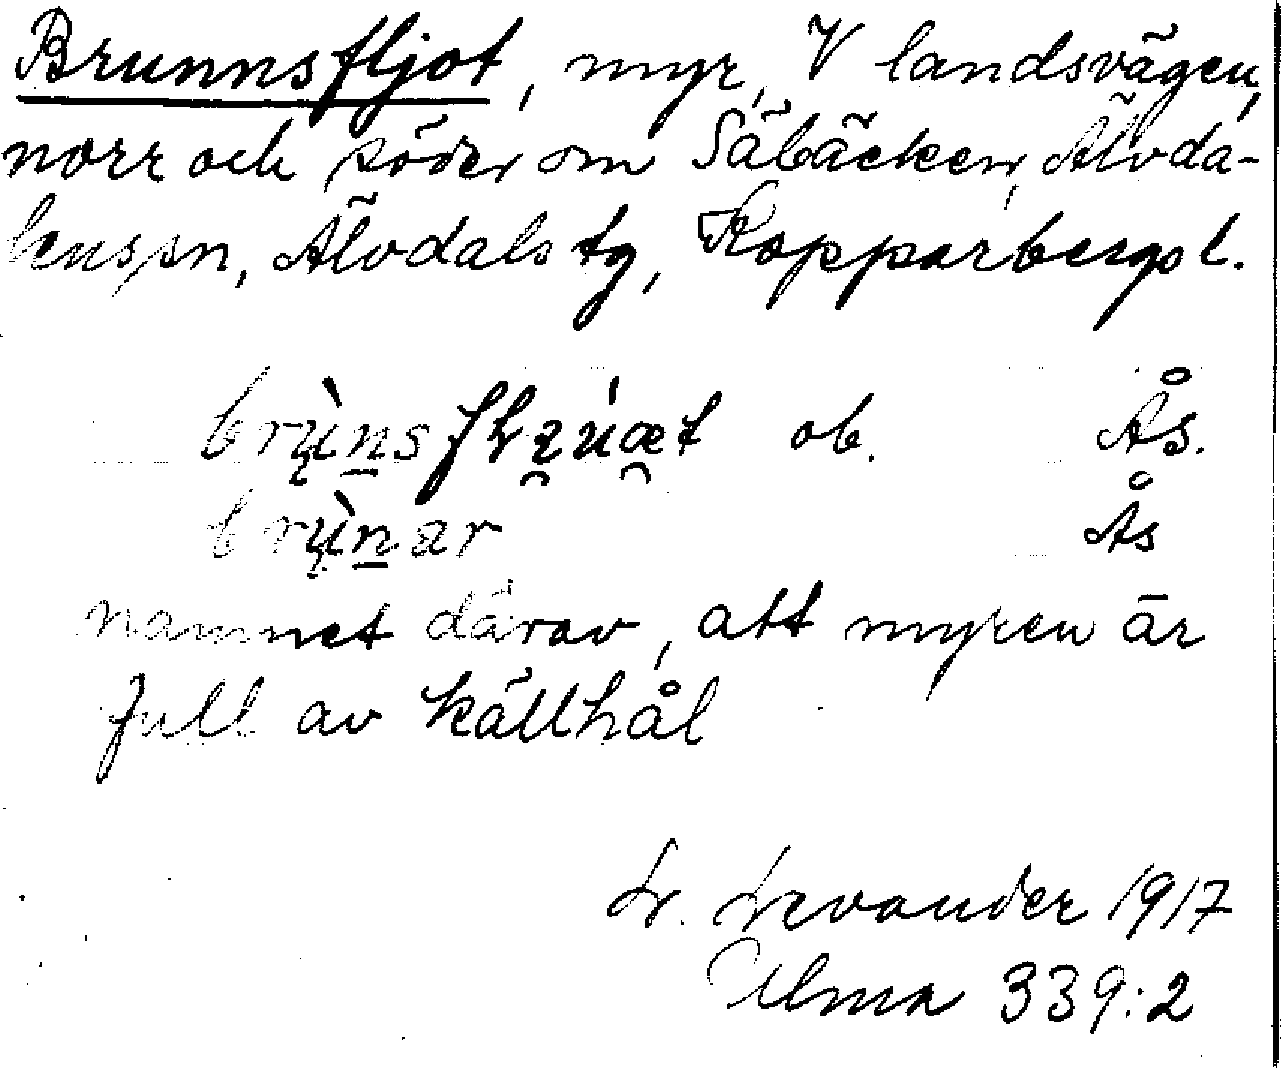 Brunnsfljot, myr, V landsvägen,
norr och söder om Säbäcken, Älvda-
lenssn, Älvdals tg, Kopparbergs l.
ob. Ås.
Ås
namnet därav, att myren är
full av källhål
L. Levander 1917
Ulma 339:2